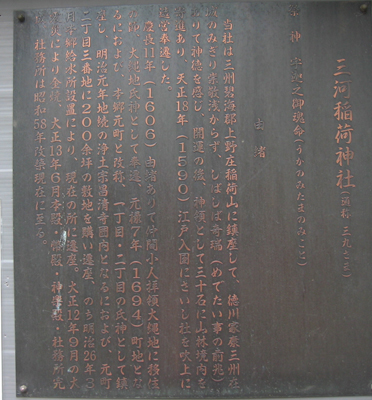 三河稲荷神社
祭神 宇迦之御魂命(うかのみたまのみこと)
由緒
当社は三州碧海郡上野庄稲荷山に鎮座して、徳川家康三州在
城のみぎり崇敬浅からず、しばしば奇瑞(めでたい事の前兆)
ありて神徳を感じ、開運の後、神領として三十石に山林境内を
寄進あり、天正18年(1590)江戸入国にさいし社を吹上に
遷宮奉遷した。
慶長11年(1606)由緒ありて仲間小人拝領大縄地に移住
大縄地氏神として奉遷、元禄7年(1694)町地とな
るにおよび、本郷元町と改称、一丁目・二丁目の氏神として鎮
座し、明治元年地続の浄土宗昌清寺囲内となるにおよび、元町
二丁目三番地に200余坪の敷地を購い遷座、のち明治26年3
本郷給水所設置により、現在の所に遷座。大正12年9月の大
災により全焼、大正13年6月本殿・幣殿・神楽殿・社務所完
社務所は昭和58年改築現在に至る。